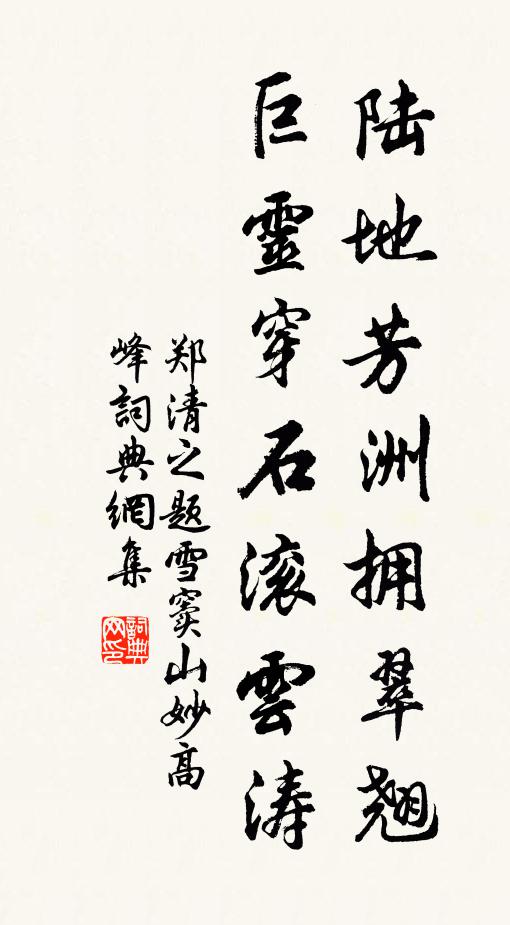 陆地芳洲拥翠翘
巨靈穿石滚雲涛
郑清之题雪窦山妙高
峰詞典網集
詞典网印